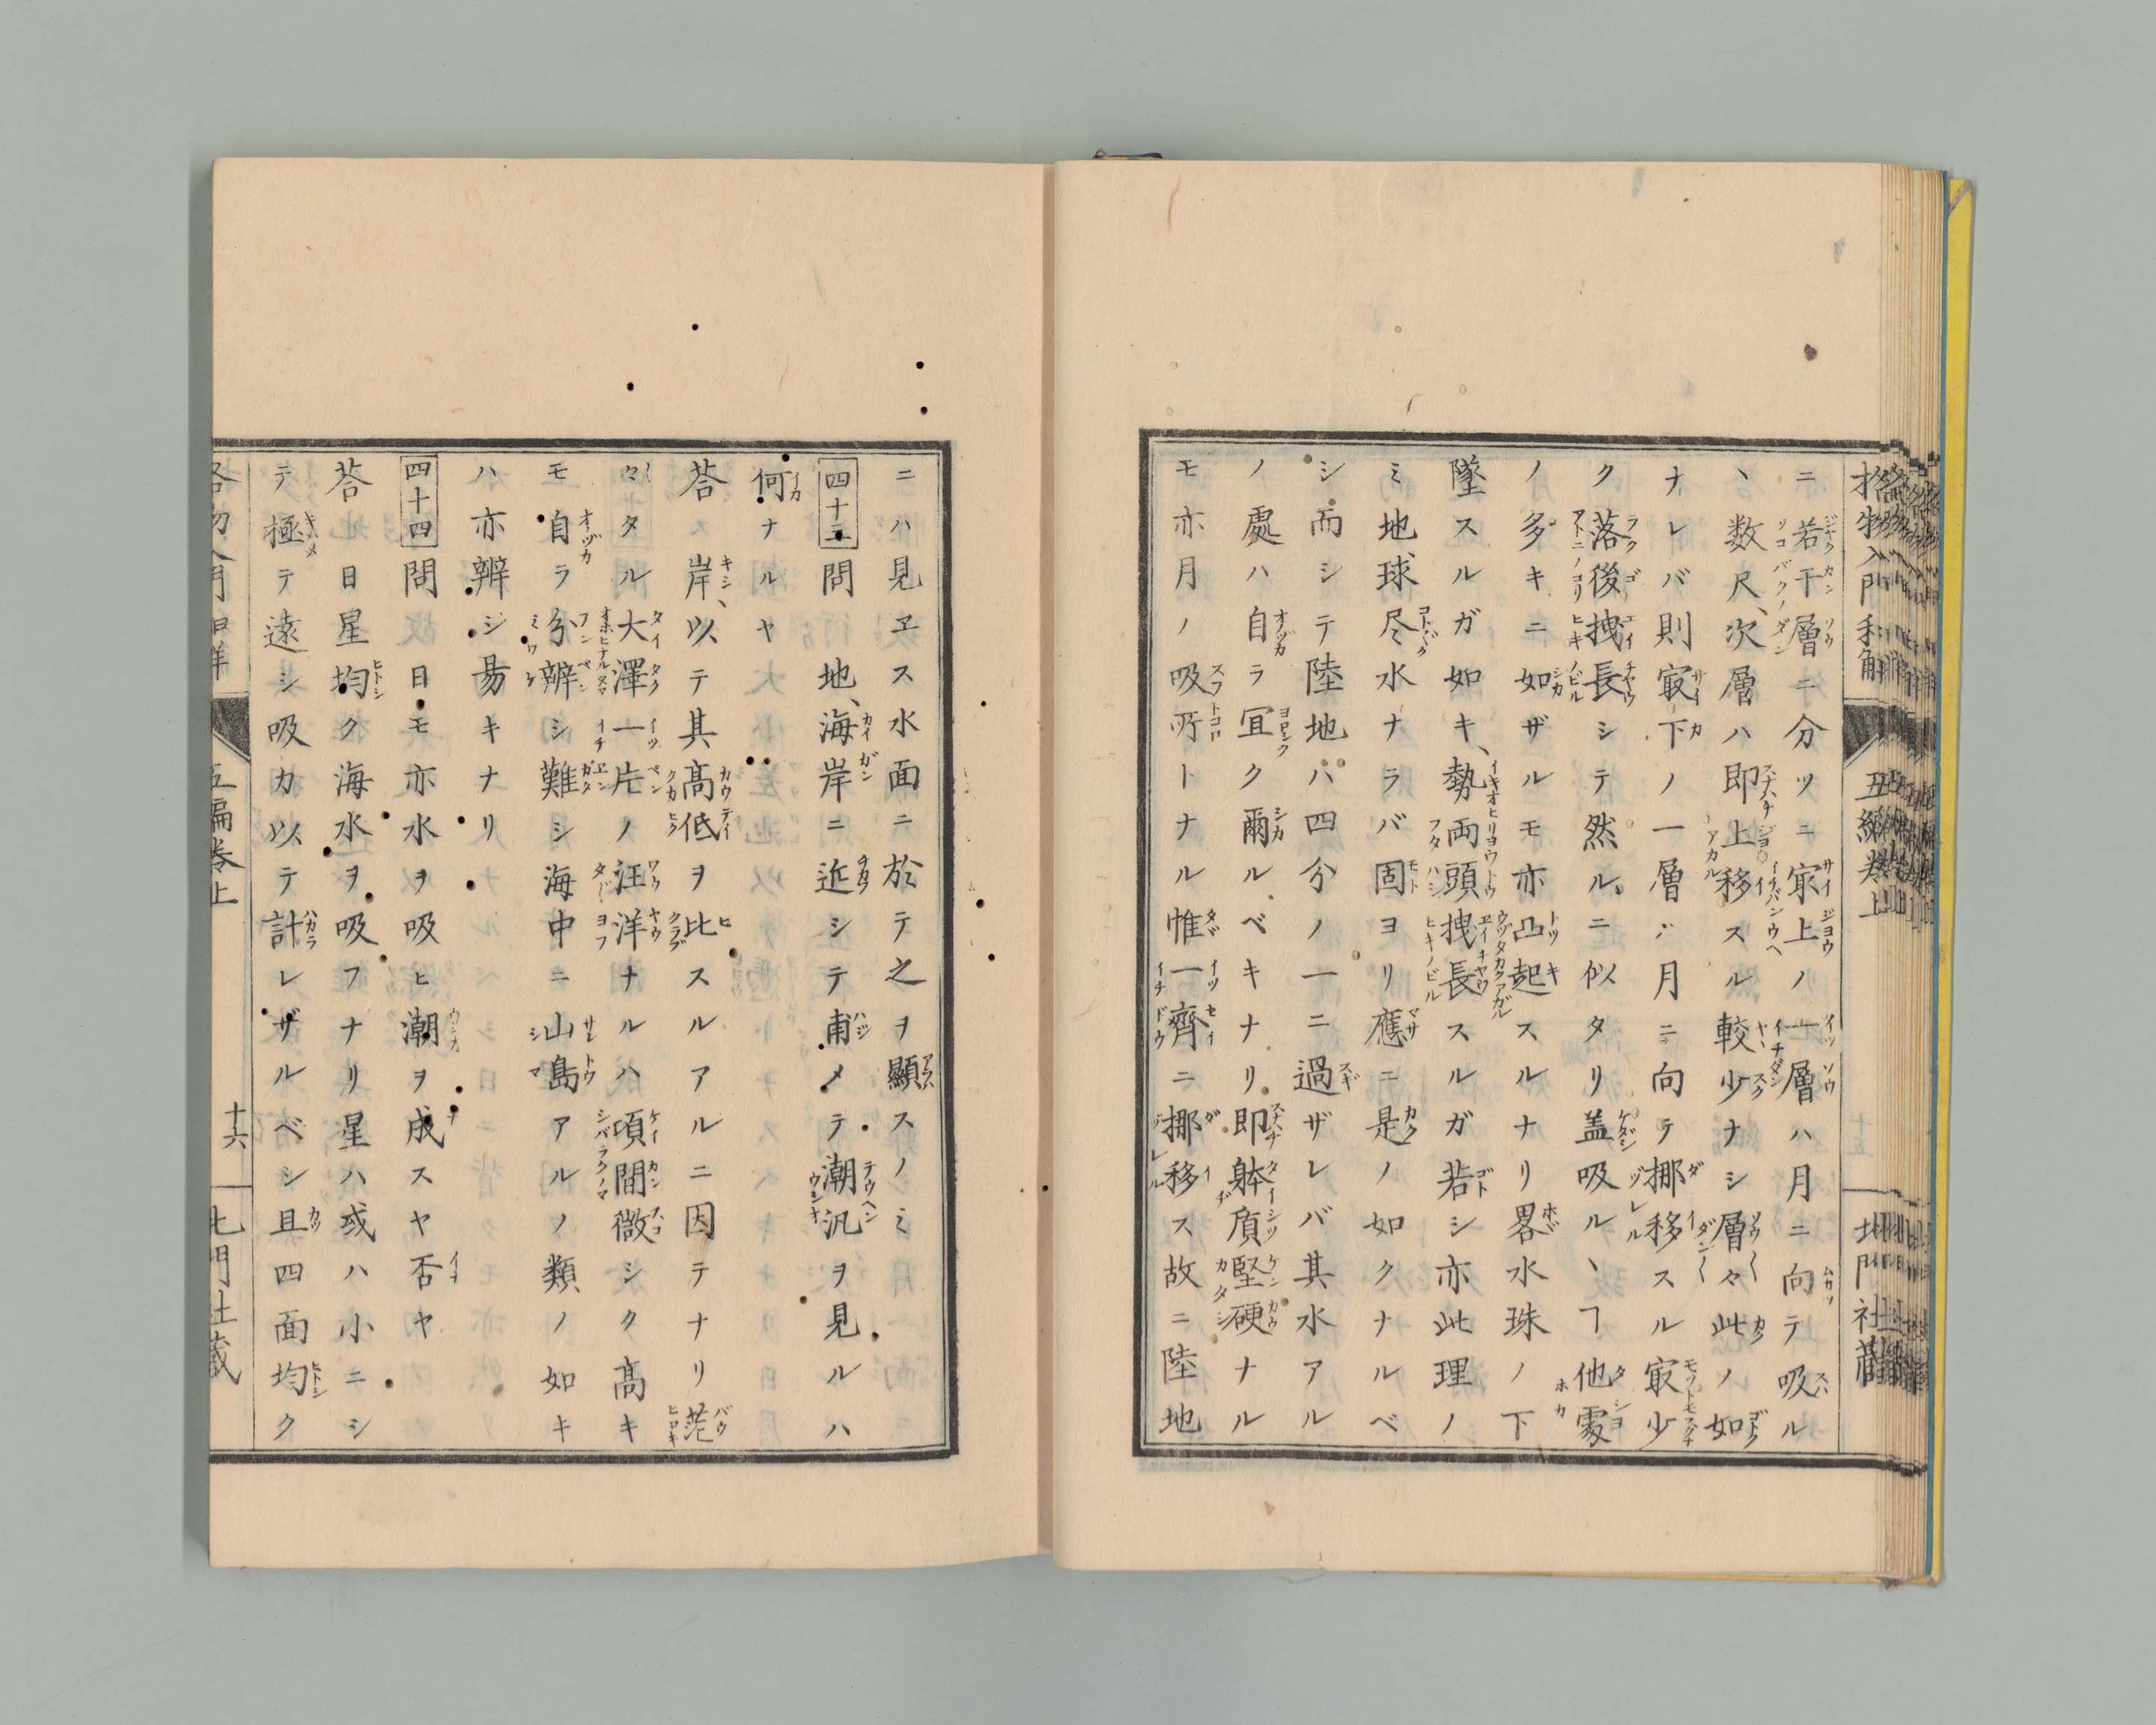 格物入門和解
五編卷上
北門社藏
ニ若干層ニ分ツニ冣上ノ一層ハ月ニ向テ吸ル
、数尺、次層ハ即上移スル較少ナシ層々此ノ如ク
ナレバ則冣下ノ一層ハ月ニ向テ挪移スル冣少
ク落後拽長シテ然ルニ似タリ盖吸ル、ヿ他處
ノ多キニ如ザルモ亦凸起スルナリ畧水珠ノ下
墜スルガ如キ、勢両頭拽長スルガ若シ亦此理ノ
ミ地球尽水ナラバ固ヨリ應ニ是ノ如クナルベ
シ而シテ陸地ハ四分ノ一ニ過ザレバ其水アル
ノ處ハ自ラ冝ク爾ルベキナリ即躰質堅硬ナル
モ亦月ノ吸所トナル惟一齊ニ挪移ス故ニ陸地
ニハ見ヱス水面ニ於テ之ヲ顯スノミ
四十三 問 地、海岸ニ近シテ甫メテ潮汎ヲ見ルハ
何ナルヤ
荅 岸、以テ其髙低ヲ比スルアルニ因テナリ茫
々タル大澤一片ノ汪洋ナルハ頃間微シク髙キ
モ自ラ分辨シ難シ海中ニ山島アルノ類ノ如キ
ハ亦辨シ易キナリ
四十四 問 日モ亦水ヲ吸ヒ潮ヲ成スヤ否ヤ
荅 日星均ク海水ヲ吸フナリ星ハ或ハ小ニシ
テ極テ遠シ吸力以テ計レザルベシ且四面均ク
格物入門和解
五編卷上
十六
北門社藏